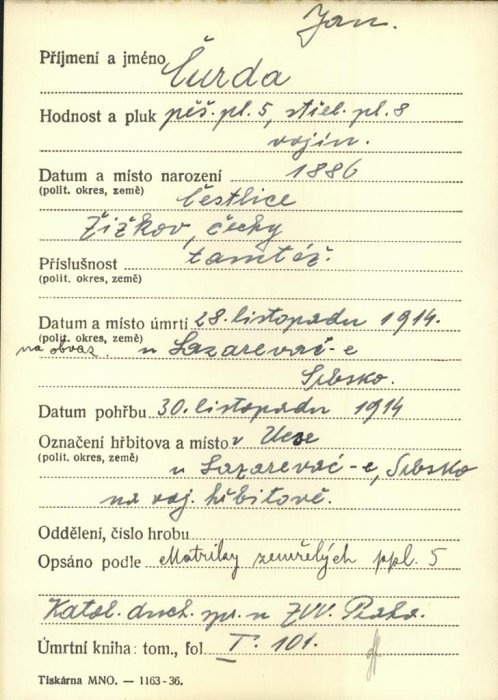 Jan.
Příjmení a jméno Čurda
Hodnost a pluk pěš. pl. 5, střel. pl. 8
vojín.
Datum a místo narození 1886
(polit. okres, země) Čestlice
Žižkov, Čechy
Příslušnost tamtéž.
(polit. okres, země)
Datum a místo úmrtí 28. listopadu 1914.
(polit. okres, země)
na obvaz. u Lazarevač-e
Srbsko.
Datum pohřbu 30. listopadu 1914
Označení hřbitova a místo v
(polit. okres, země)
u Lazarevač-e, Srbsko
na voj. hřbitově.
Oddělení, číslo hrobu
Opsáno podle Matriky zemřelých ppl. 5
Katol. duch. spr. u ZVV. Praha.
Úmrtní kniha: tom., fol. I. 101.
Tiskárna MNO. — 1163-36.